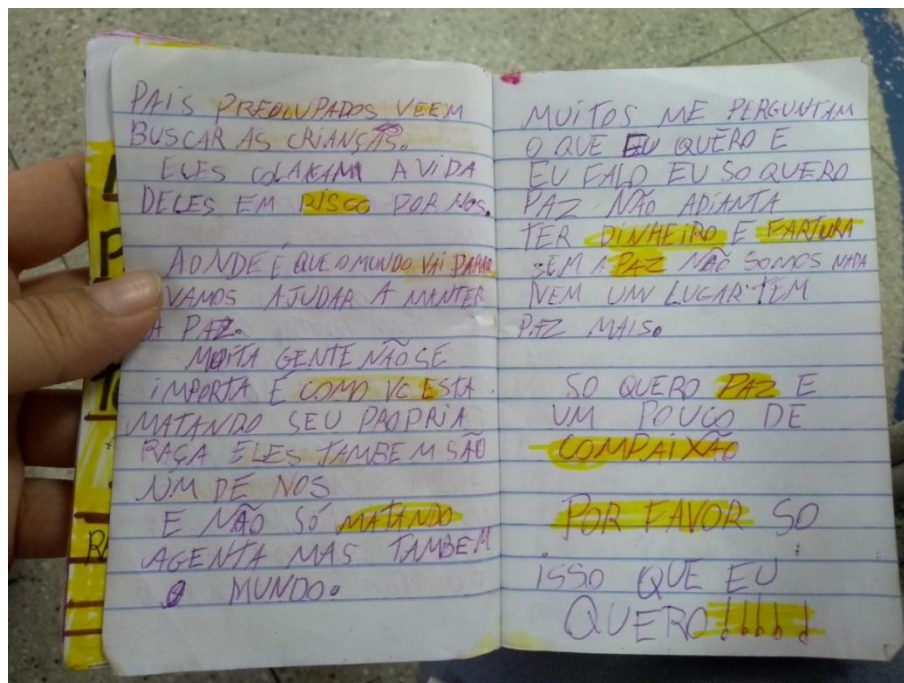 PAIS PREOLUPADOS VEEM
BUSCAR AS CRIANÇAS.
ELES COLAKAM A VIDA
DELES EM RISCO POR NOS.
AONDE É QUE O MUNDO VAI PARAR
VAMOS AJUDAR A MANTER
A PAZ.
MUITA GENTE NÃO SE
IMPORTA É COMO VC ESTA
MATANDO SEU PROPRIA
RAÇA ELES TAMBEM SÃO
UM DE NOS
E NÃO SÓ MATANDO
AGENTA MAS TAMBEM
O MUNDO.
MUITOS ME PERGUNTAM
O QUE EU QUERO E
EU FALO EU SO QUERO
PAZ NÃO ADIANTA
TER DINHEIRO E FARTURA
SEM A PAZ NÃO SOMOS NADA
NEM UM LUGAR TEM
PAZ MAIS.
SO QUERO PAZ E
UM POUCO DE
COMPAIXÃO
POR FAVOR SO
ISSO QUE EU
QUERO!!!!!